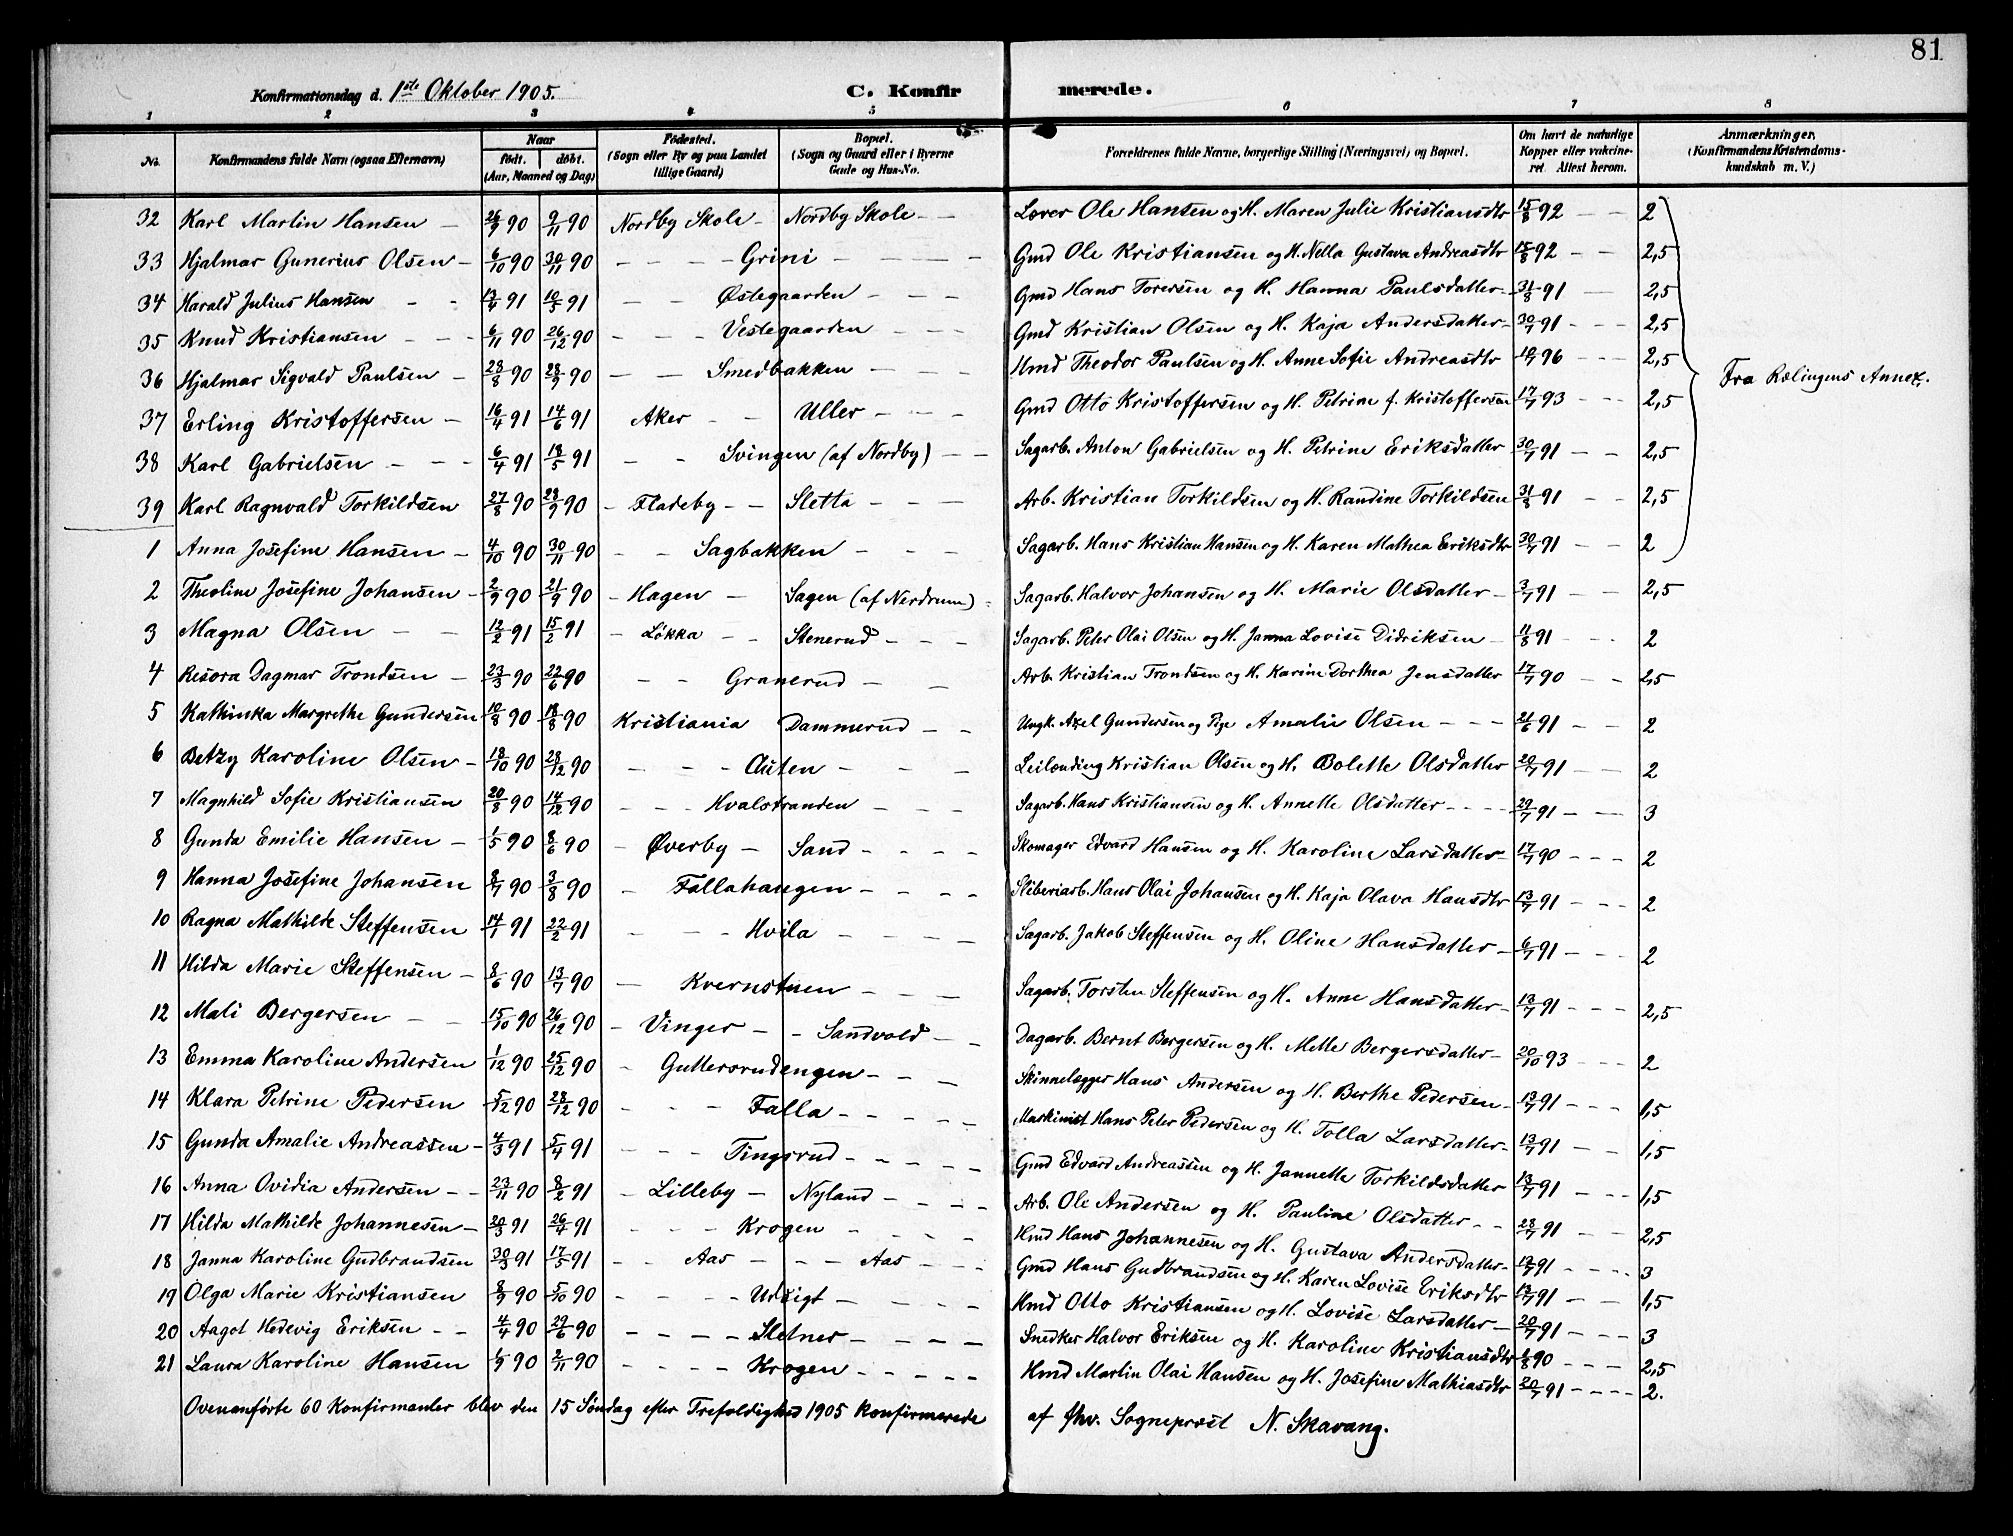 81
Konfirmationsdag d. 1ste Oktober 1905. C. Konfirmerede.
1 2 3 4 5 6 7 8
No. Konfirmandens fulde Navn (ogsaa Efternavn) Naar født. døbt. (Aar, Maaned og Dag) Fødested. (Sogn eller By og paa Landet tillige Gaard) Bopæl. (Sogn og Gaard eller i Byerne Gade og Hus-No. Forældrenes fulde Navne, borgerlige Stilling (Næringsvei) og Bopæl. Om havt de naturlige Kopper eller vaccineret. Attest herom. Anmærkninger, (Konfirmandens Kristendomskundskab m. V.)
32 Karl Martin Hansen — 26/9 90 9/11 90 Nordby Skole - Nordby Skole - - Lærer Ole Hansen og H. Maren Julie Kristiansdtr 15/8 92 - - 2
33 Hjalmar Gunerius Olsen - 6/10 90 30/11 90 - - - - Grini - - - - Gmd Ole Kristiansen og H. Nella Gustava Andreasdtr 15/8 92 - - 2,5
34 Harald Julius Hansen - - 13/4 91 10/5 91 - - Østegaarden - - - Gmd Hans Toresen og H. Hanna Paulsdatter - 31/8 91 - - 2,5
35 Knud Kristiansen - - - 6/11 90 26/12 90 - - - Vestegaarden - - - Gmd Kristian Olsen og H. Kaja Andersdatter - 30/7 91 - - - 2,5
36 Hjalmar Sigvald Paulsen - 23/8 90 28/9 90 - - Smedbakken - - - Hmd Theodor Paulsen og H. Anne Sofie Andreasdtr 10/7 96 - - - 2,5 Fra Rælingens Annex.
37 Erling Kristoffersen - 16/4 91 14/6 91 Aker - - Uller - - - Gmd Otto Kristoffersen og H. Petrine f. Kristoffersen 17/7 93 - - - 2,5
38 Karl Gabrielsen - - - 6/4 91 18/5 91 - - Svingen (af Nordby) - - Sagarb. Anton Gabrielsen og H. Petrine Eriksdatter 30/7 91 - - 2,5
39 Karl Ragnvald Torkildsen 27/8 90 28/9 90 - Fladeby - - Sletta - - - Arb. Kristian Torkildsen og H. Randine Torkildsen 31/8 91 - - 2,5
1 Anna Josefine Hansen - 4/10 90 30/11 90 - - Sagbakken - - - Sagarb. Hans Kristian Hansen og H. Karen Mathea Eriksdtr 30/7 91 - - 2
2 Theoline Josefine Johansen - 2/9 90 21/9 90 - Hagen - Sagen (af Nerdrum) - Sagarb. Halvor Johansen og H. Marie Olsdatter - 3/7 91 - - 2,5
3 Magna Olsen - - 12/2 91 15/2 91 - Løkka - - Stenerud - - - Sagarb. Peter Olai Olsen og H. Janna Lovise Didriksen - 11/8 91 - - 2
4 Resora Dagmar Trondsen - 23/3 90 22/6 90 - - Granerud - - Arb. Kristian Trondsen og H. Karine Dorthea Jensdatter 17/7 90 - - 2,5
5 Kathinka Margrethe Gundersen 10/8 90 18/8 90 Kristiania Dammerud - - Ungk. Axel Gundersen og Pige Amalie Olsen - - - 21/6 91 - - 2
6 Betzy Karoline Olsen - 18/10 90 28/12 90 - - - Auten - - - Leilænding Kristian Olsen og H. Bolette Olsdatter 20/7 91 - - 2
7 Magnhild Sofie Kristiansen 20/8 90 14/12 90 - - - Hvalstranden - - Sagarb. Hans Kristiansen og H. Annette Olsdatter - - - - 29/7 91 - - 3
8 Gunda Emilie Hansen - 1/5 90 8/6 90 - Øverby - Sand - - - - Skomager Edvard Hansen og H. Karoline Larsdatter - 17/7 90 - - - 2
9 Hanna Josefine Johansen 8/7 90 3/8 90 - Fallahaugen - - - - Sliberiarb. Hans Olai Johansen og H. Kaja Olava Hansdtr 13/7 91 - - - 2
10 Ragna Mathilde Steffensen 14/1 91 22/2 91 - - - Hvila - - - - Sagarb. Jakob Steffensen og H. Oline Hansdatter - 6/7 91 - - 2
11 Hilda Marie Steffensen - 8/6 90 13/7 90 - Kvernstuen - - - Sagarb. Torsten Steffensen og H. Anne Hansdatter - 13/7 91 - - - 2,5
12 Mali Bergersen - - 15/10 90 26/12 90 - Vinger - - Sandvold - - Dagarb. Bernt Bergersen og H. Mette Bergersdatter - 20/10 93 - - - 2
13 Emma Karoline Andersen 1/12 90 25/12 90 - Guttersrudengen - - - Skinnelægger Hans Andersen og H. Berthe Pedersen - 13/7 91 - - - 1,5
14 Klara Petrine Pedersen 5/12 90 28/12 90 - - - Falla - - - - - Maskinist Hans Peter Pedersen og H. Tolla Larsdatter - 13/7 91 - - - 1,5
15 Gunda Amalie Andreassen - 4/3 91 5/4 91 - - - Tingsrud - - - - - Gmd Edvard Andreassen og H. Jannette Torkildsdatter 13/7 91 - - - 1,5
16 Anna Ovidia Andersen - - 23/11 90 8/2 91 - Lilleby - Nyland - - - - Arb. Ole Andersen og H. Pauline Olsdatter - - 28/7 91 - - - 2,5
17 Hilda Mathilde Johannesen - 20/3 91 26/4 91 - - - Krogen - - - - Hmd Hans Johannesen og H. Gustava Andersdatter - 13/7 91 - - - - 3
18 Janna Karoline Gudbrandsen 30/3 91 17/5 91 - - Aas - - - Aas - - - Gmd Hans Gudbrandsen og H. Karen Lovise Eriksdtr 13/7 91 - - - 1,5
19 Olga Marie Kristiansen 8/9 90 5/10 90 - - - - Udsigt - - - - Hmd Otto Kristiansen og H. Lovise Larsdatter - 20/7 91 - - - 3
20 Aagot Hedevig Eriksen - - 4/4 90 29/6 90 - - - - Sletner - - - - Snedker Halvor Eriksen og H. Karoline Kristiansdtr 1/8 90 - - - 2,5
21 Laura Karoline Hansen 1/9 90 2/11 90 - - - - Krogen - - - - - Hmd Martin Olai Hansen og H. Josefine Mathiasdtr 20/7 91 - - - - 2.
Ovenanførte 60 Konfirmanter blev den 15 Søndag efter Trefoldighed 1905 konfirmerede af fhv. Sognepræst N. Skavang.